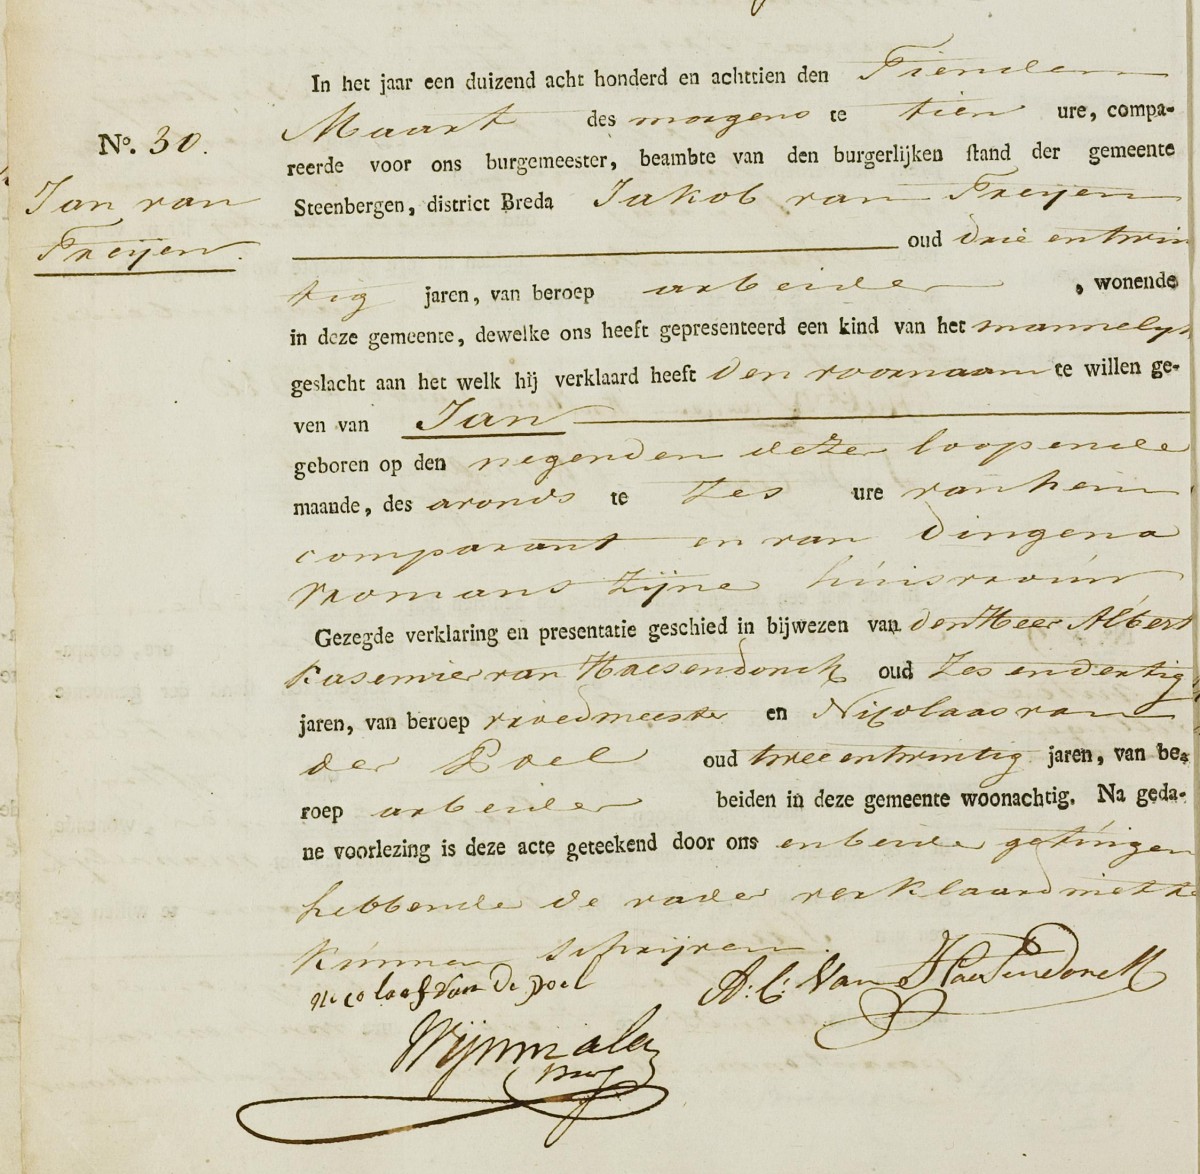 In het jaar een duizend acht honderd en achttien den Tienden
Maart des morgens te tien ure, compa-
No. 30.
reerde voor ons burgemeester, beambte van den burgerlijken stand der gemeente
Jan van
Steenbergen, district Breda Jakob van Treijen
Treijen.
oud drie en twin
tig jaren, van beroep arbeider, wonende
in deze gemeente, dewelke ons heeft gepresenteerd een kind van het mannelijk
geslacht aan het welk hij verklaard heeft den voornaam te willen ge-
ven van Jan
geboren op den negenden dezer loopende
maande, des avonds te zes ure van hem
comparant en van Dingena
Vromans zijne huisvrouw
Gezegde verklaring en presentatie geschied in bijwezen van den Heer Albert
Kasemier van Haesendonck oud zes en dertig
jaren, van beroep vroedmeester en Nicolaas van
der Poel oud twee en twintig jaren, van be-
roep arbeider beiden in deze gemeente woonachtig. Na geda-
ne voorlezing is deze acte geteekend door ons en beide getuigen
hebbende de vader verklaard niet te
kunnen schrijven.
Nicolaas van De poel A: C: Van Haesendonck
Wijnmalen